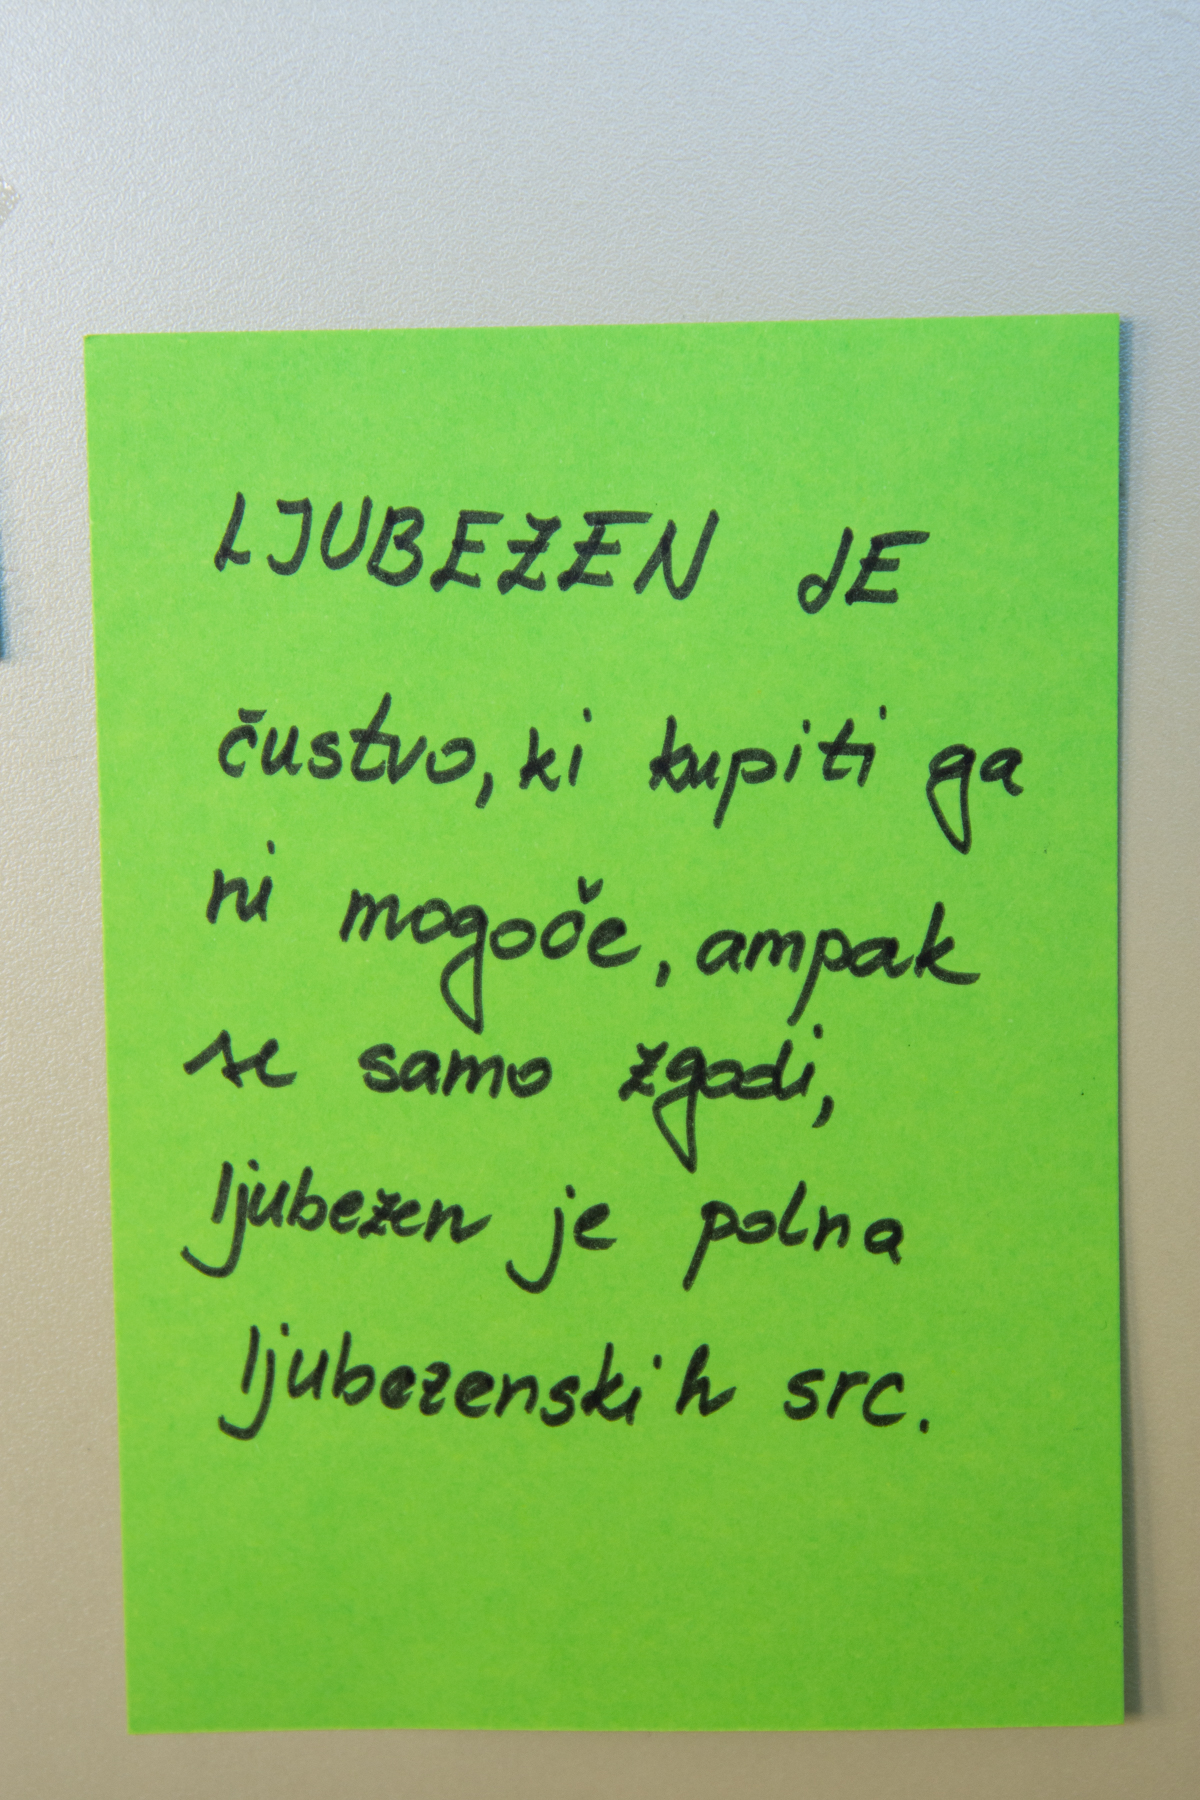 LJUBEZEN JE
čustvo, ki kupiti ga
ni mogoče, ampak
se samo zgodi,
ljubezen je polna
ljubezenskih src.